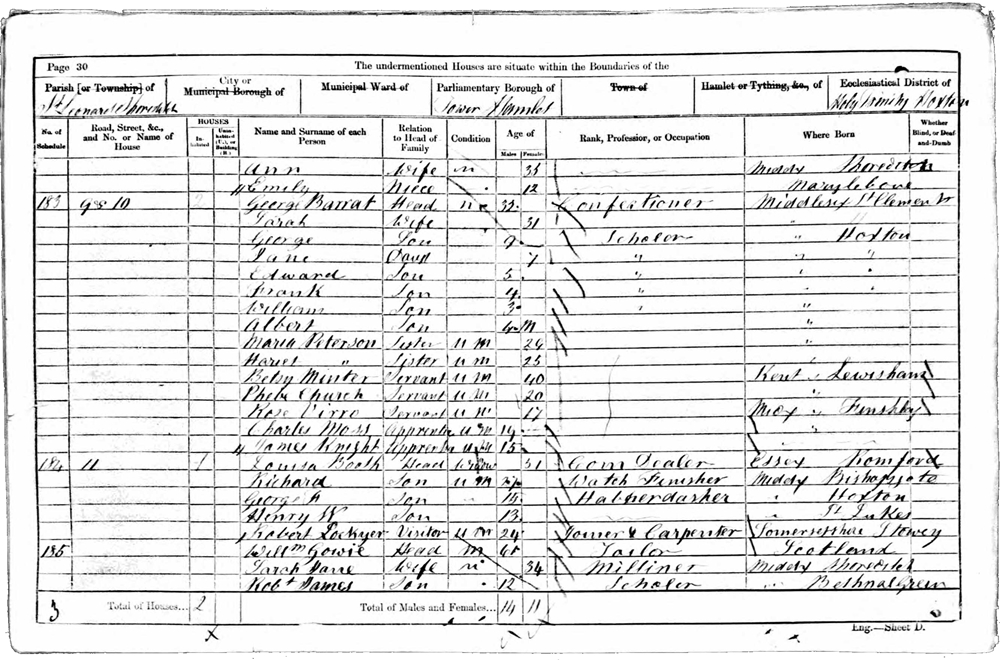 Page 30 The undermentioned Houses are situate within the Boundaries of the
Parish [or Township] of City or Municipal Borough of Municipal Ward of Parliamentary Borough of Town of Hamlet or Tything, &c., of Ecclesiastical District of
St Leonard Shoreditch Tower Hamlets Holy Trinity Hoxton
No. of Schedule Road, Street, &c., and No. or Name of House HOUSES Inhabited Uninhabited (U.), or Building (B.) Name and Surname of each Person Relation to Head of Family Condition Age of Males Females Rank, Profession, or Occupation Where Born Whether Blind, or Deaf-and-Dumb
Ann Wife m 35 Middx Shoreditch
Emily Niece 12 Marylebone
183 9 & 10 2 George Barrat Head m 32 Confectioner Middlesex St Clement
Sarah Wife 31 "
George Son 9 Scholar " Hoxton
Jane Daur 7 " " "
Edward Son 5 " "
Frank Son 4 " "
William Son 3 " "
Albert Son 4 m "
Maria Peterson Sister u m 24 "
Harriet " Sister u m 25 "
Betsy Minter Servant u m 40 Kent " Lewisham
Phebe Church Servant u m 20 "
Rose Virro Servant u m 17 Midx " Finsbury
Charles Moss Apprentice u m 14 "
James Knight Apprentice u m 15
184 11 1 Louisa Booth Head Widow 51 Dealer Essex Romford
Richard Son u m Watch Finisher Middx Bishopsgate
George H Son 14 Habherdasher " Hoxton
Henry W Son 13 " St Lukes
Robert Lockyer Visitor u m 24 Joiner & Carpenter Somersetshire Stowey
185 Willm Gowie Head m 40 Tailor Scotland
Sarah Jane Wife m 34 Milliner Middx Shoreditch
Robt James Son 12 Scholar " Bethnal Green
3 Total of Houses... 2 Total of Males and Females... 14 11
Eng.—Sheet D.